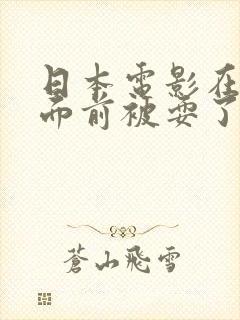 日本電影在
而前被耍了
蒼山飛雪